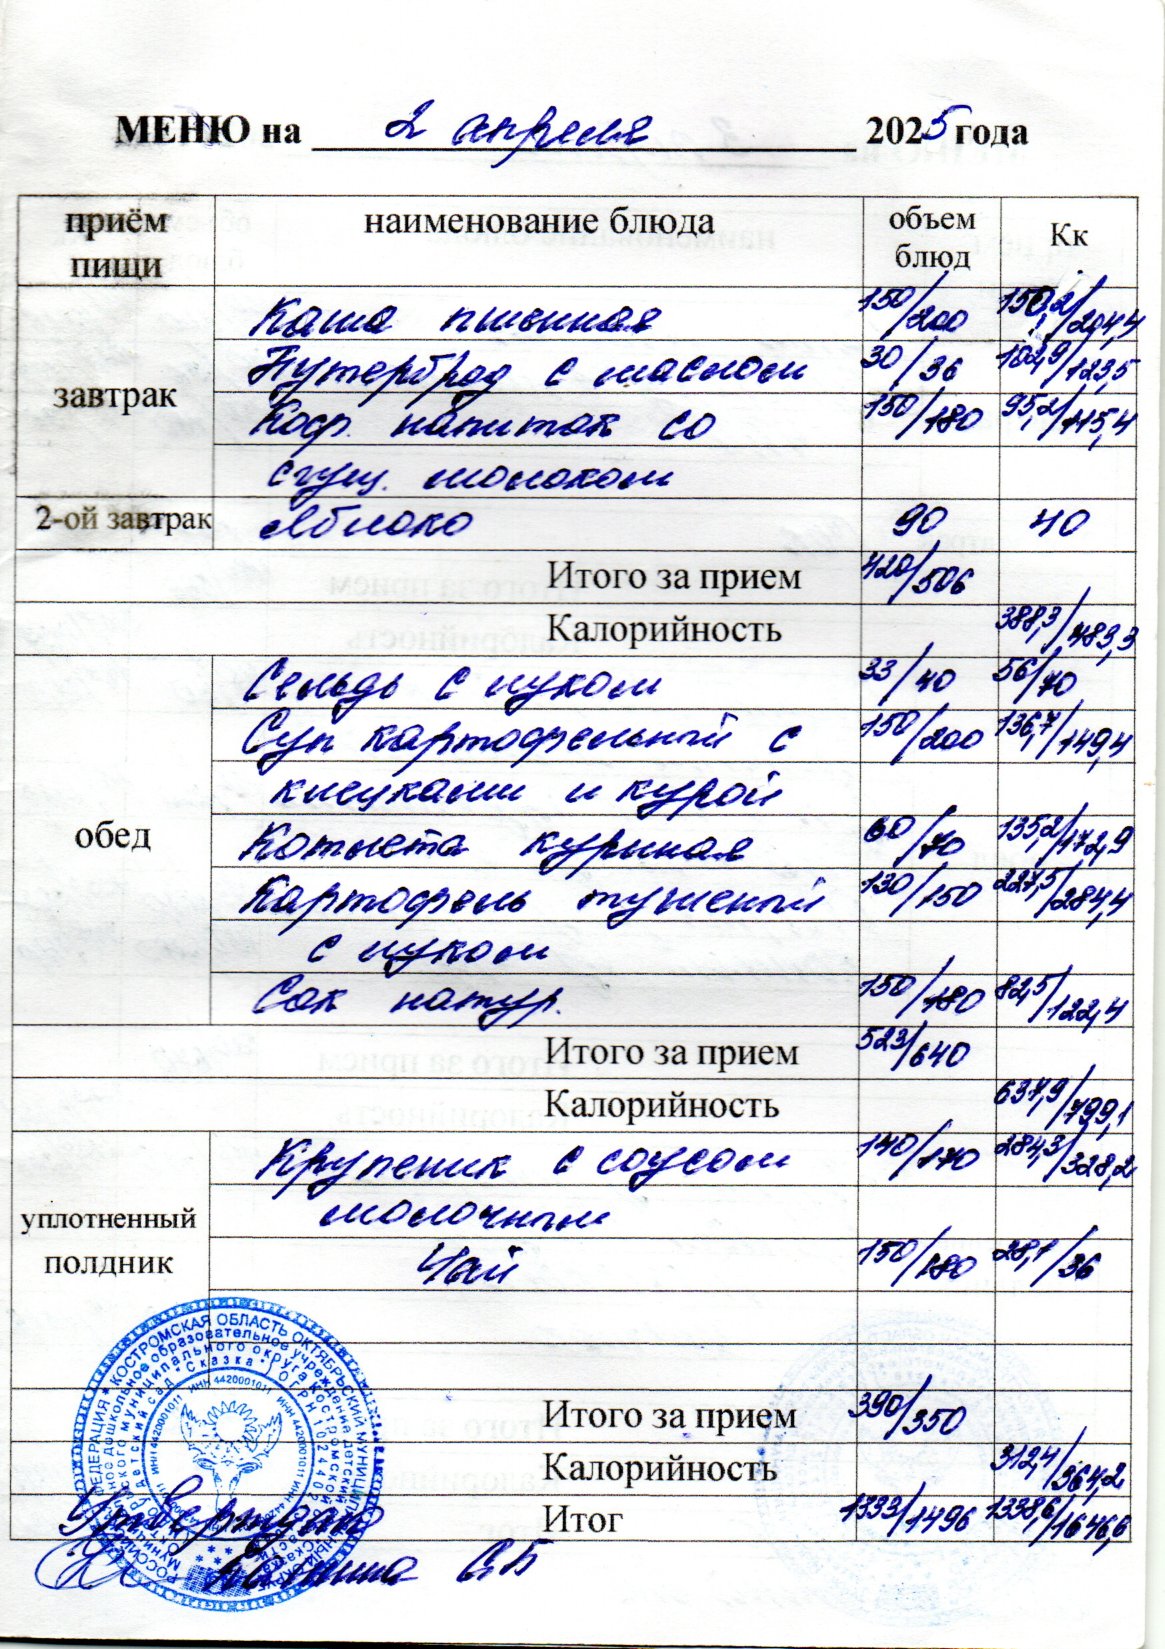 МЕНЮ на 2 апреля 2025 года
приём пищи наименование блюда объем блюд Кк
завтрак
Каша пшенная 150/200 150,2/204,4
Бутерброд с маслом 30/36 102,9/123,5
Коф. напиток со 150/180 95,2/115,4
сгущ. молоком
2-ой завтрак Яблоко 90 40
Итого за прием 420/506
Калорийность 388,3/483,3
обед
Сельдь с луком 33/40 56/70
Суп картофельный с 150/200 136,7/149,4
клецками и курой
Котлета куриная 60/70 135,2/172,9
Картофель тушеный 130/150 227,5/284,4
с луком
Сок натур. 150/180 82,5/122,4
Итого за прием 523/640
Калорийность 637,9/799,1
уплотненный полдник
Крупеник с соусом 140/170 284,3/328,2
молочным
Чай 150/180 28,1/36
Итого за прием 390/350
Калорийность 312,4/364,2
Итог 1333/1496 1338,6/1646,6
Утверждаю
С.Б
КОСТРОМСКАЯ ОБЛАСТЬ ОКТЯБРЬСКИЙ МУНИЦИПАЛЬНЫЙ ОКРУГ
детский сад "Сказка"
ИНН 4420001011